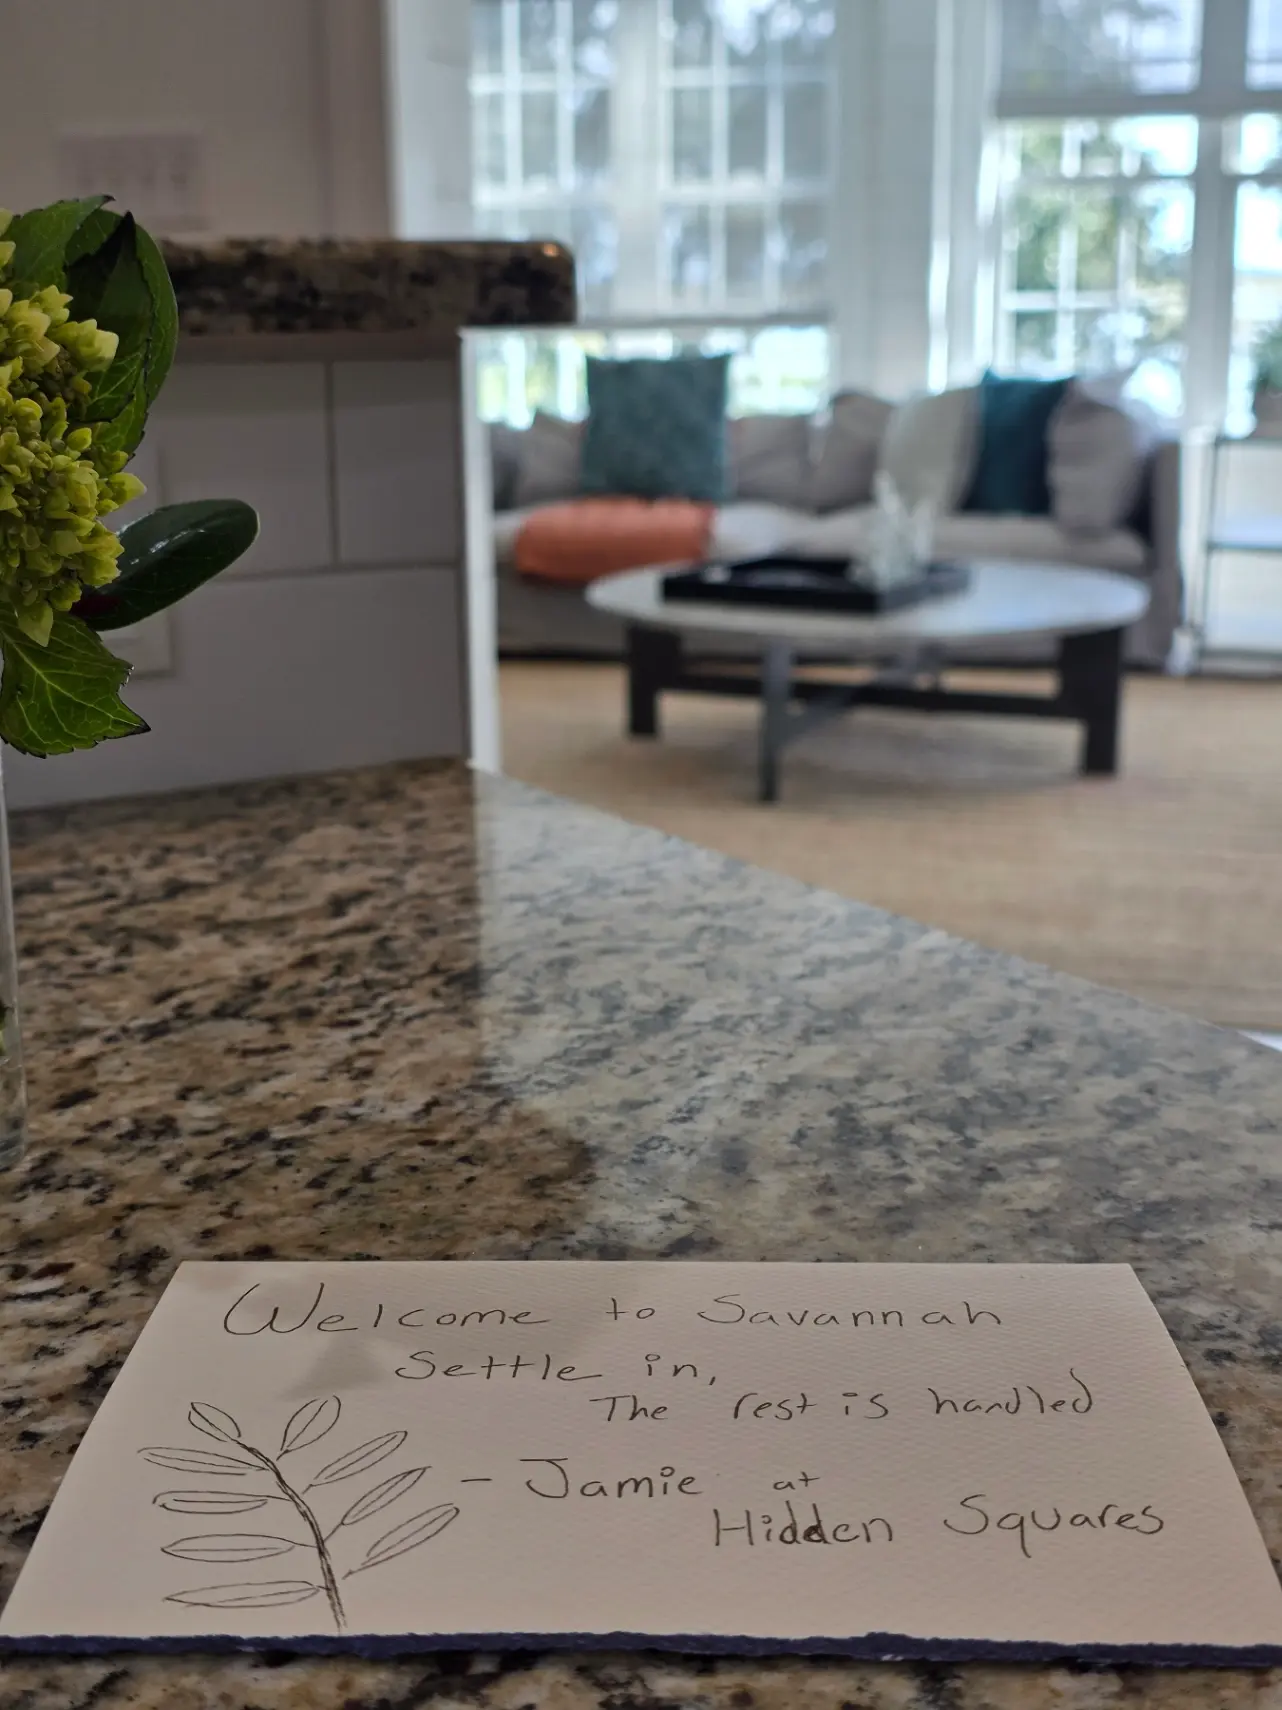 Welcome to Savannah
Settle in,
The rest is handled
- Jamie at
Hidden Squares